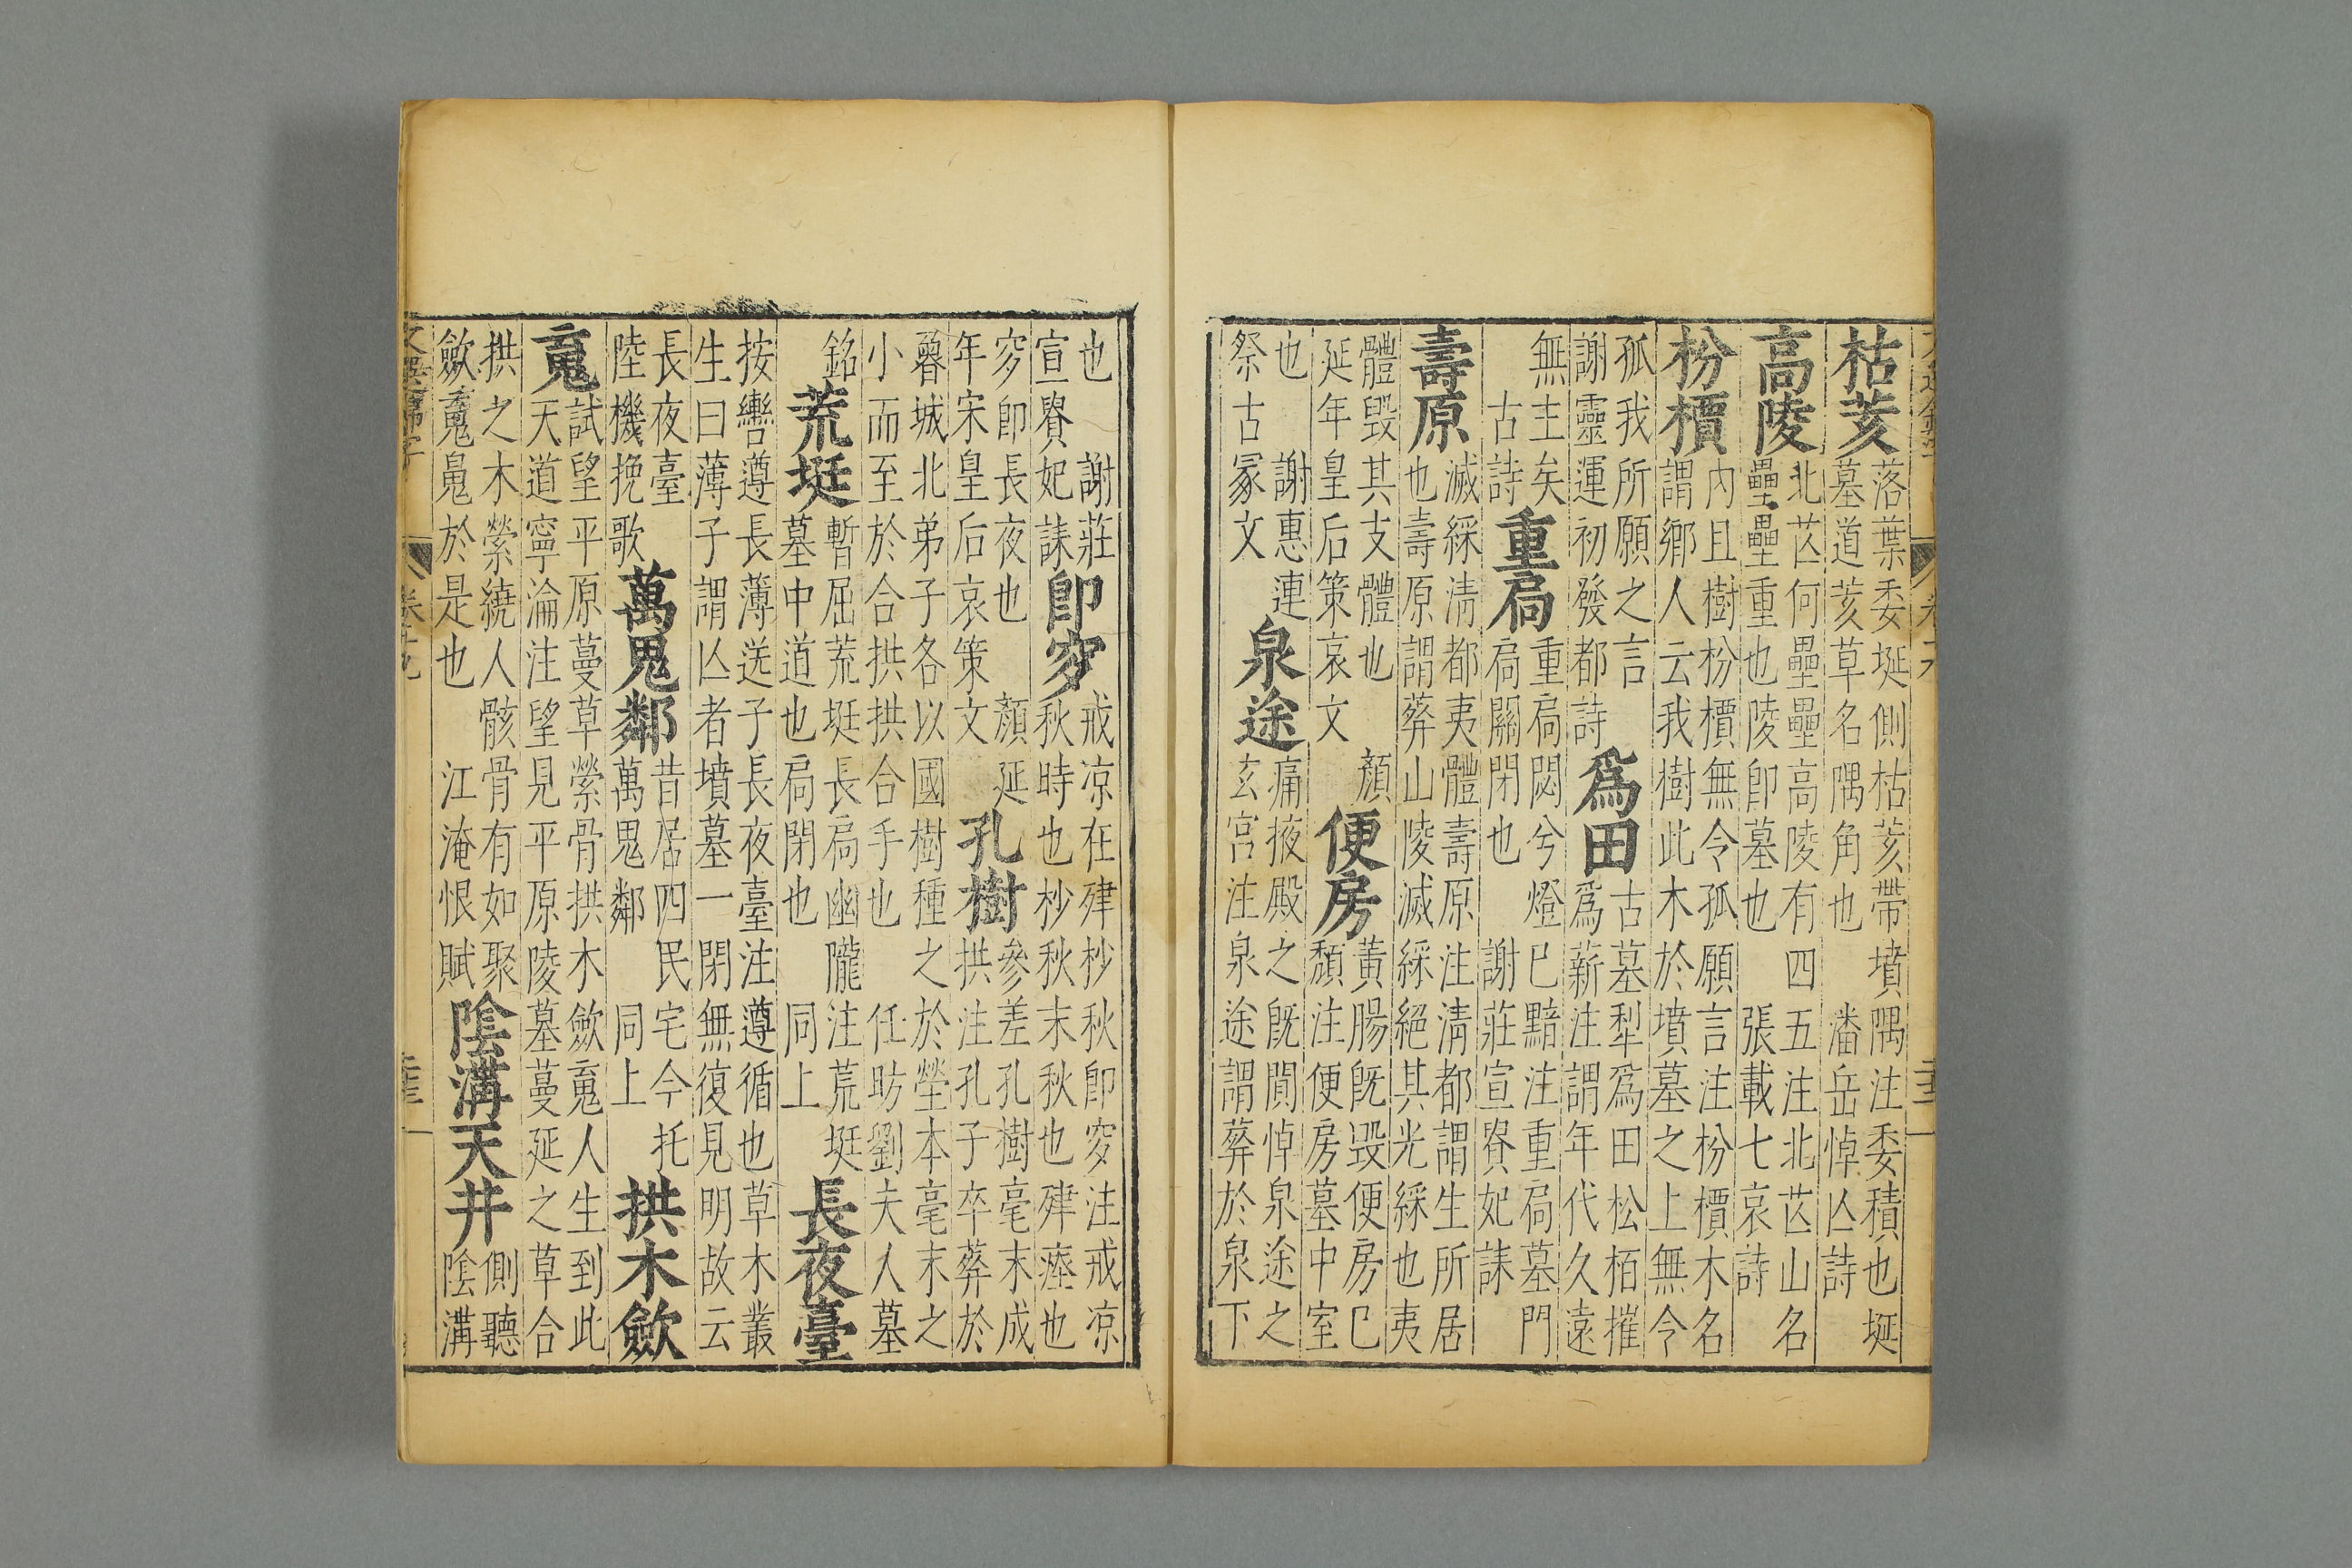 枯荄
落葉委埏側枯荄帶墳隅注委積也埏
墓道荄草名隅角也 潘岳悼亾詩
高陵
北芒何壘壘高陵有四五注北芒山名
壘壘重也陵卽墓也 張載七哀詩
枌檟
內且樹枌檟無令孤願言注枌檟木名
謂鄉人云我樹此木於墳墓之上無令
孤我所願之言
謝靈運初發都詩
爲田
古墓犁爲田松栢摧
爲薪注謂年代久遠
無主矣
古詩
重扃
重扃閟兮燈巳黯注重扃墓門
扃關閉也 謝莊宣貴妃誄
壽原
滅綵清都夷體壽原注清都謂生所居
也壽原謂葬山陵滅綵絕其光綵也夷
體毀其支體也 顏
延年皇后策哀文
便房
黃腸旣毀便房巳
頹注便房墓中室
也 謝惠連
祭古冢文
泉途
痛掖殿之旣闃悼泉途之
玄宮注泉途謂葬於泉下
也 謝莊
宣貴妃誄
卽穸
戒凉在肂杪秋卽穸注戒凉
秋時也杪秋末秋也肂瘞也
穸卽長夜也 顏延
年宋皇后哀策文
孔樹
參差孔樹毫末成
拱注孔子卒葬於
魯城北弟子各以國樹種之於塋本毫末之
小而至於合拱拱合手也 任昉劉夫人墓
銘
荒埏
暫屈荒埏長扃幽隴注荒埏
墓中道也扃閉也 同上
長夜臺
按轡遵長薄送子長夜臺注遵循也草木叢
生曰薄子謂亾者墳墓一閉無復見明故云
長夜臺
陸機挽歌
萬鬼鄰
昔居四民宅今托
萬鬼鄰 同上
拱木歛
䰟
試望平原蔓草縈骨拱木歛䰟人生到此
天道寧淪注望見平原陵墓蔓延之草合
拱之木縈繞人骸骨有如聚
歛䰟䰟於是也 江淹恨賦
陰溝天井
側聽
陰溝